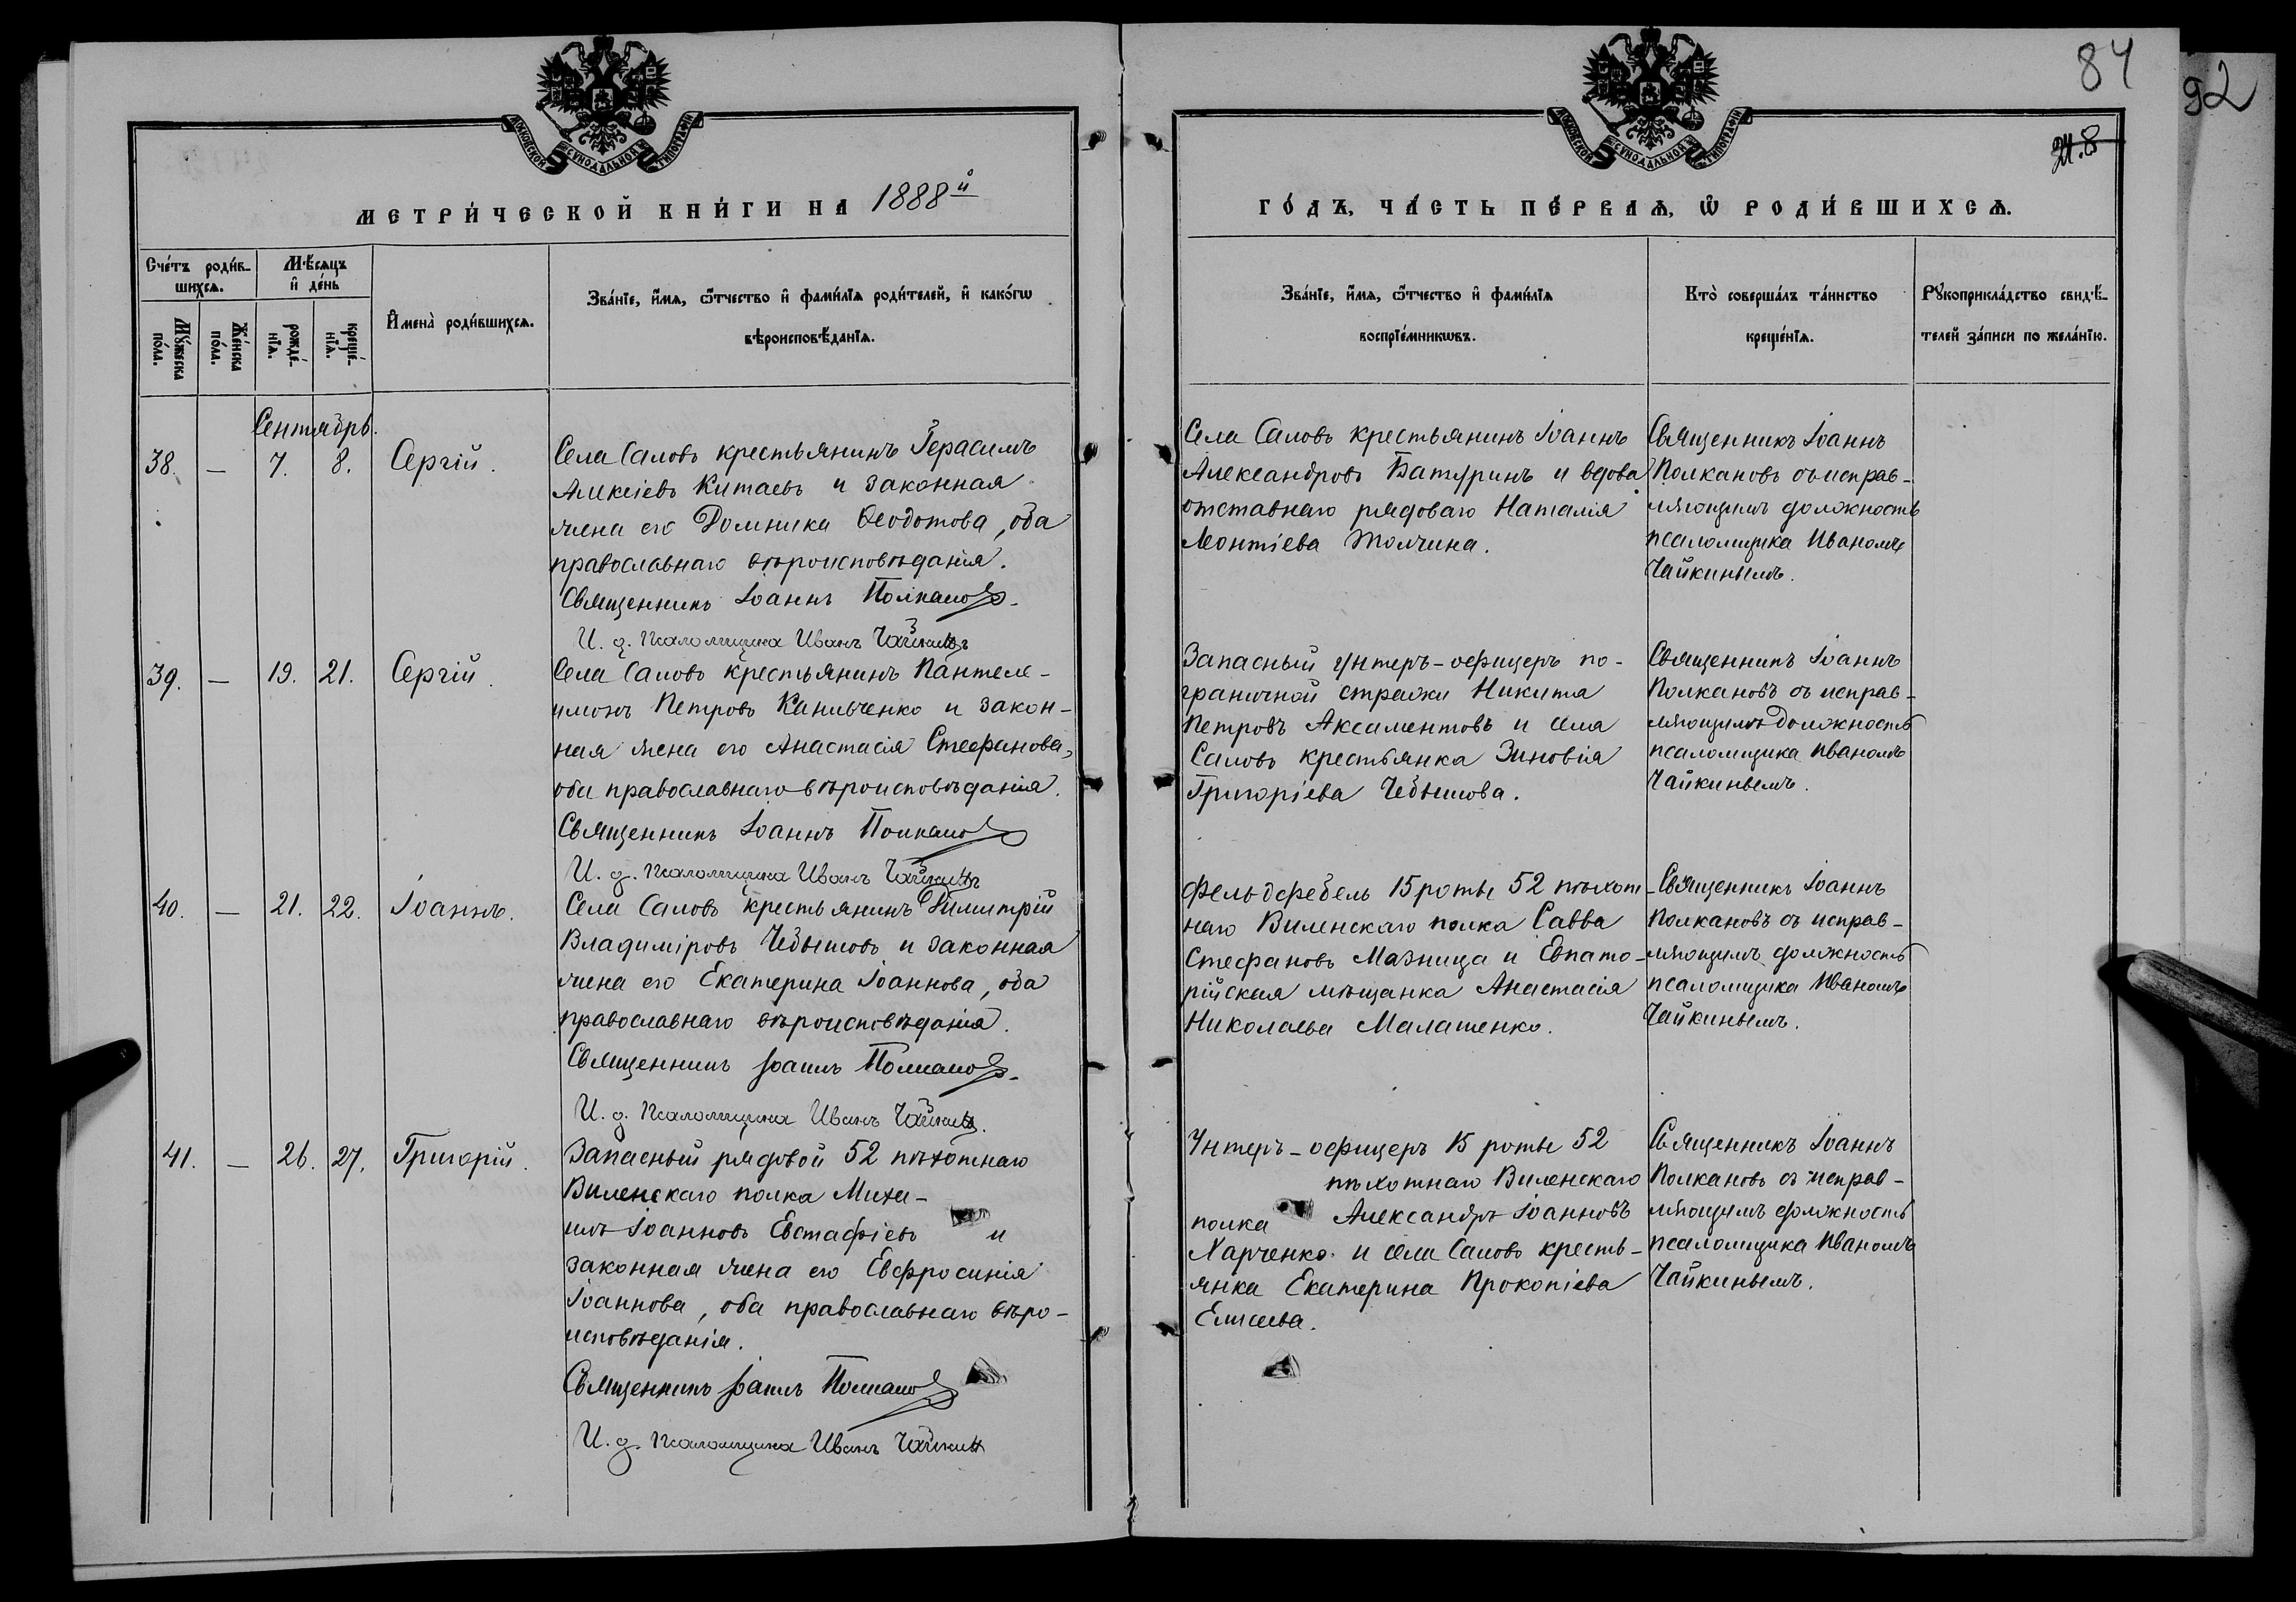 84
92
МОСКОВСКОЙ СѴНОДАЛЬНОЙ ТИПОГРАФІИ
МОСКОВСКОЙ СѴНОДАЛЬНОЙ ТИПОГРАФІИ
МЕТРИ́ЧЕСКОЙ КНИ́ГИ НА 1888й
ГО́ДЪ, ЧА́СТЬ ПЕ́РВАЯ, Ѡ РОДИ́ВШИХСЯ.
Сче́тъ роди́в-
шихся.
Мꙋ́жеска по́ла.
Же́нска по́ла.
Мѣ́сяцъ
и де́нь
рожде́-
нїя.
креще́-
нїя.
Имена̀ роди́вшихся.
Зва́нїе, и́мя, ѻ́тчество и фами́лїя роди́телей, и како́гѡ
вѣроисповѣ́данїя.
Зва́нїе, и́мя, ѻ́тчество и фами́лїя
воспрїе́мникѡвъ.
Кто̀ соверша́лъ та́инство
креще́нїя.
Рꙋкоприкла́дство свидѣ́-
телей за́писи по жела́нїю.
Сентябрь.
38. — 7. 8. Сергій.
Села Саловъ крестьянинъ Герасимъ
Алексіевъ Китаевъ и законная
жена его Домника Ѳеодотова, оба
православнаго вѣроисповѣданія.
Священникъ Іоаннъ Полкановъ
И. д. псаломщика Иванъ Чайкинъ
Села Саловъ крестьянинъ Іоаннъ
Александровъ Батуринъ и вдова
отставнаго рядоваго Наталія
Леонтіева Толчина.
Священникъ Іоаннъ
Полкановъ съ исправ-
ляющимъ должность
псаломщика Иваномъ
Чайкинымъ.
39. — 19. 21. Сергій.
Села Саловъ крестьянинъ Пантеле-
имонъ Петровъ Канивченко и закон-
ная жена его Анастасія Стефанова,
оба православнаго вѣроисповѣданія.
Священникъ Іоаннъ Полкановъ
И. д. псаломщика Иванъ Чайкинъ
Запасный унтеръ-офицеръ по-
граничной стражи Никита
Петровъ Аксаментовъ и села
Саловъ крестьянка Зиновія
Григоріева Чебышова.
Священникъ Іоаннъ
Полкановъ съ исправ-
ляющимъ должность
псаломщика Иваномъ
Чайкинымъ.
40. — 21. 22. Іоаннъ.
Села Саловъ крестьянинъ Димитрій
Владиміровъ Чебышовъ и законная
жена его Екатерина Іоаннова, оба
православнаго вѣроисповѣданія.
Священникъ Іоаннъ Полкановъ
И. д. псаломщика Иванъ Чайкинъ.
Фельдфебель 15 роты 52 пѣхот-
наго Виленскаго полка Савва
Стефановъ Мазница и Евпато-
рійская мѣщанка Анастасія
Николаева Малашенко.
Священникъ Іоаннъ
Полкановъ съ исправ-
ляющимъ должность
псаломщика Иваномъ
Чайкинымъ.
41. — 26. 27. Григорій.
Запасный рядовой 52 пѣхотнаго
Виленскаго полка Миха-
илъ Іоанновъ Евстафіевъ и
законная жена его Евфросинія
Іоаннова, оба православнаго вѣро-
исповѣданія.
Священникъ Іоаннъ Полкановъ
И. д. псаломщика Иванъ Чайкинъ
Унтеръ-офицеръ 15 роты 52
пѣхотнаго Виленскаго
полка Александръ Іоанновъ
Харченко и села Саловъ кресть-
янка Екатерина Прокопіева
Елисеева.
Священникъ Іоаннъ
Полкановъ съ исправ-
ляющимъ должность
псаломщика Иваномъ
Чайкинымъ.